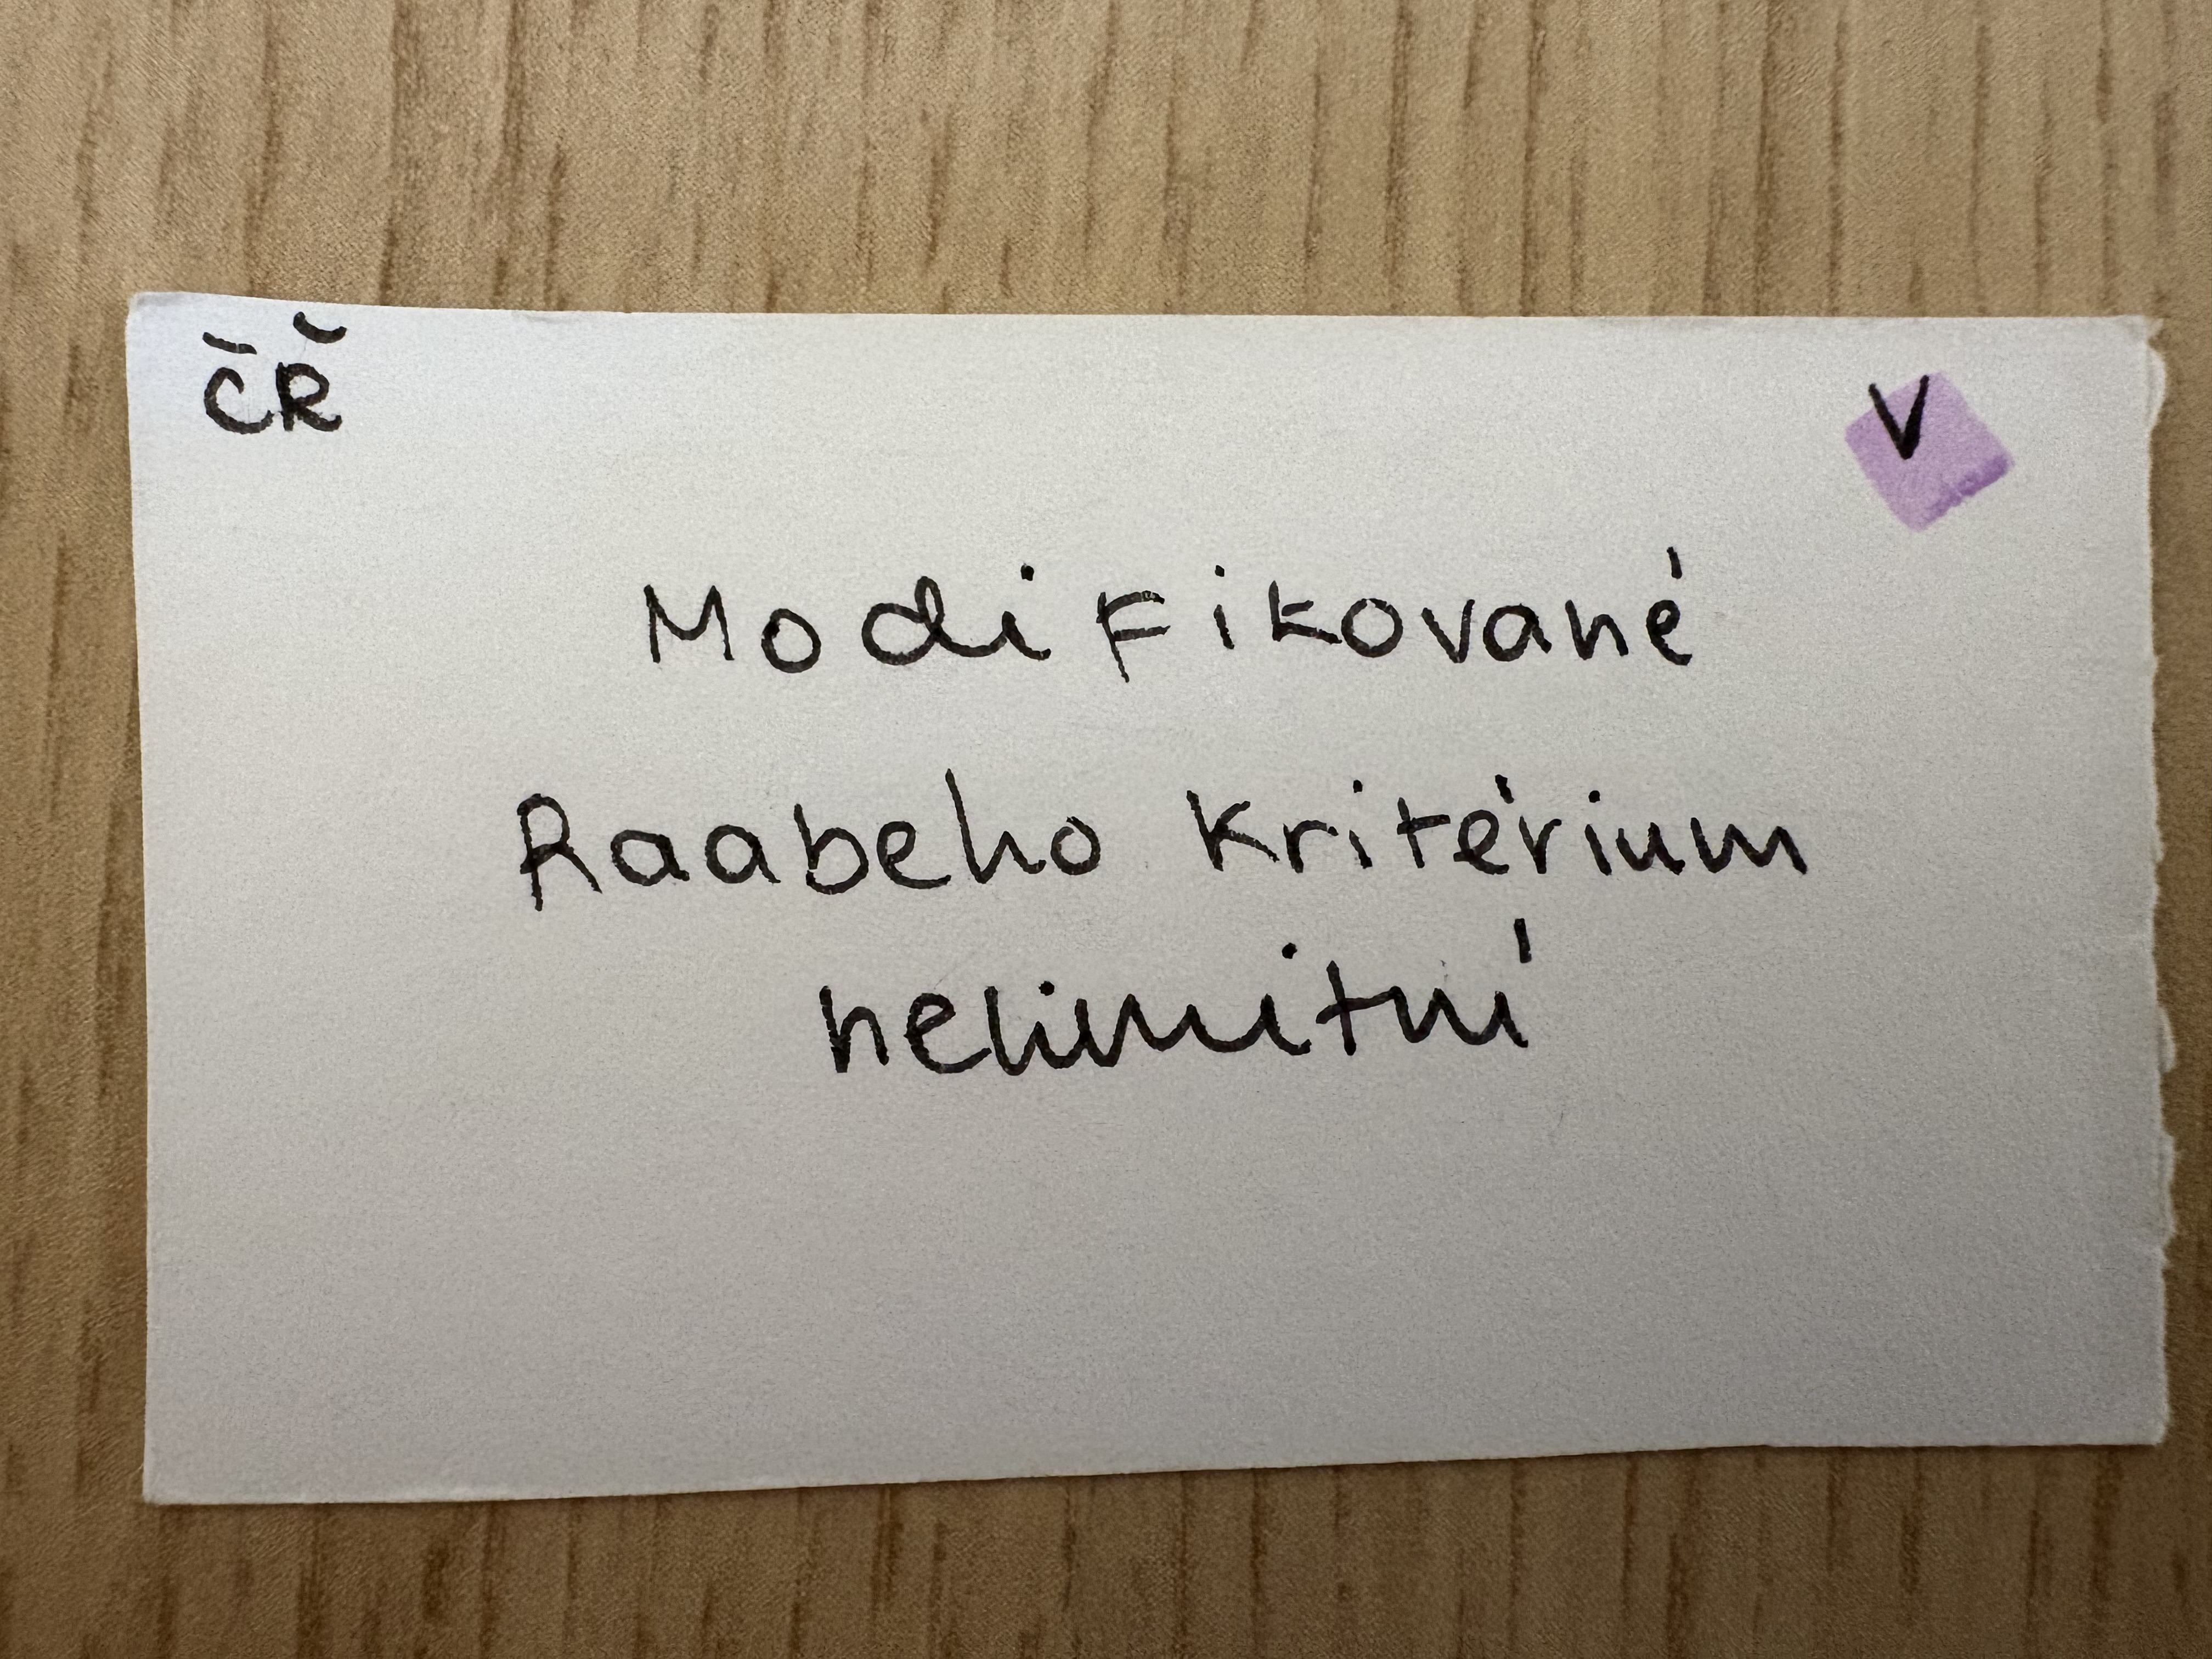 ČŘ
V
Modifikované
Raabeho kritérium
nelimitní